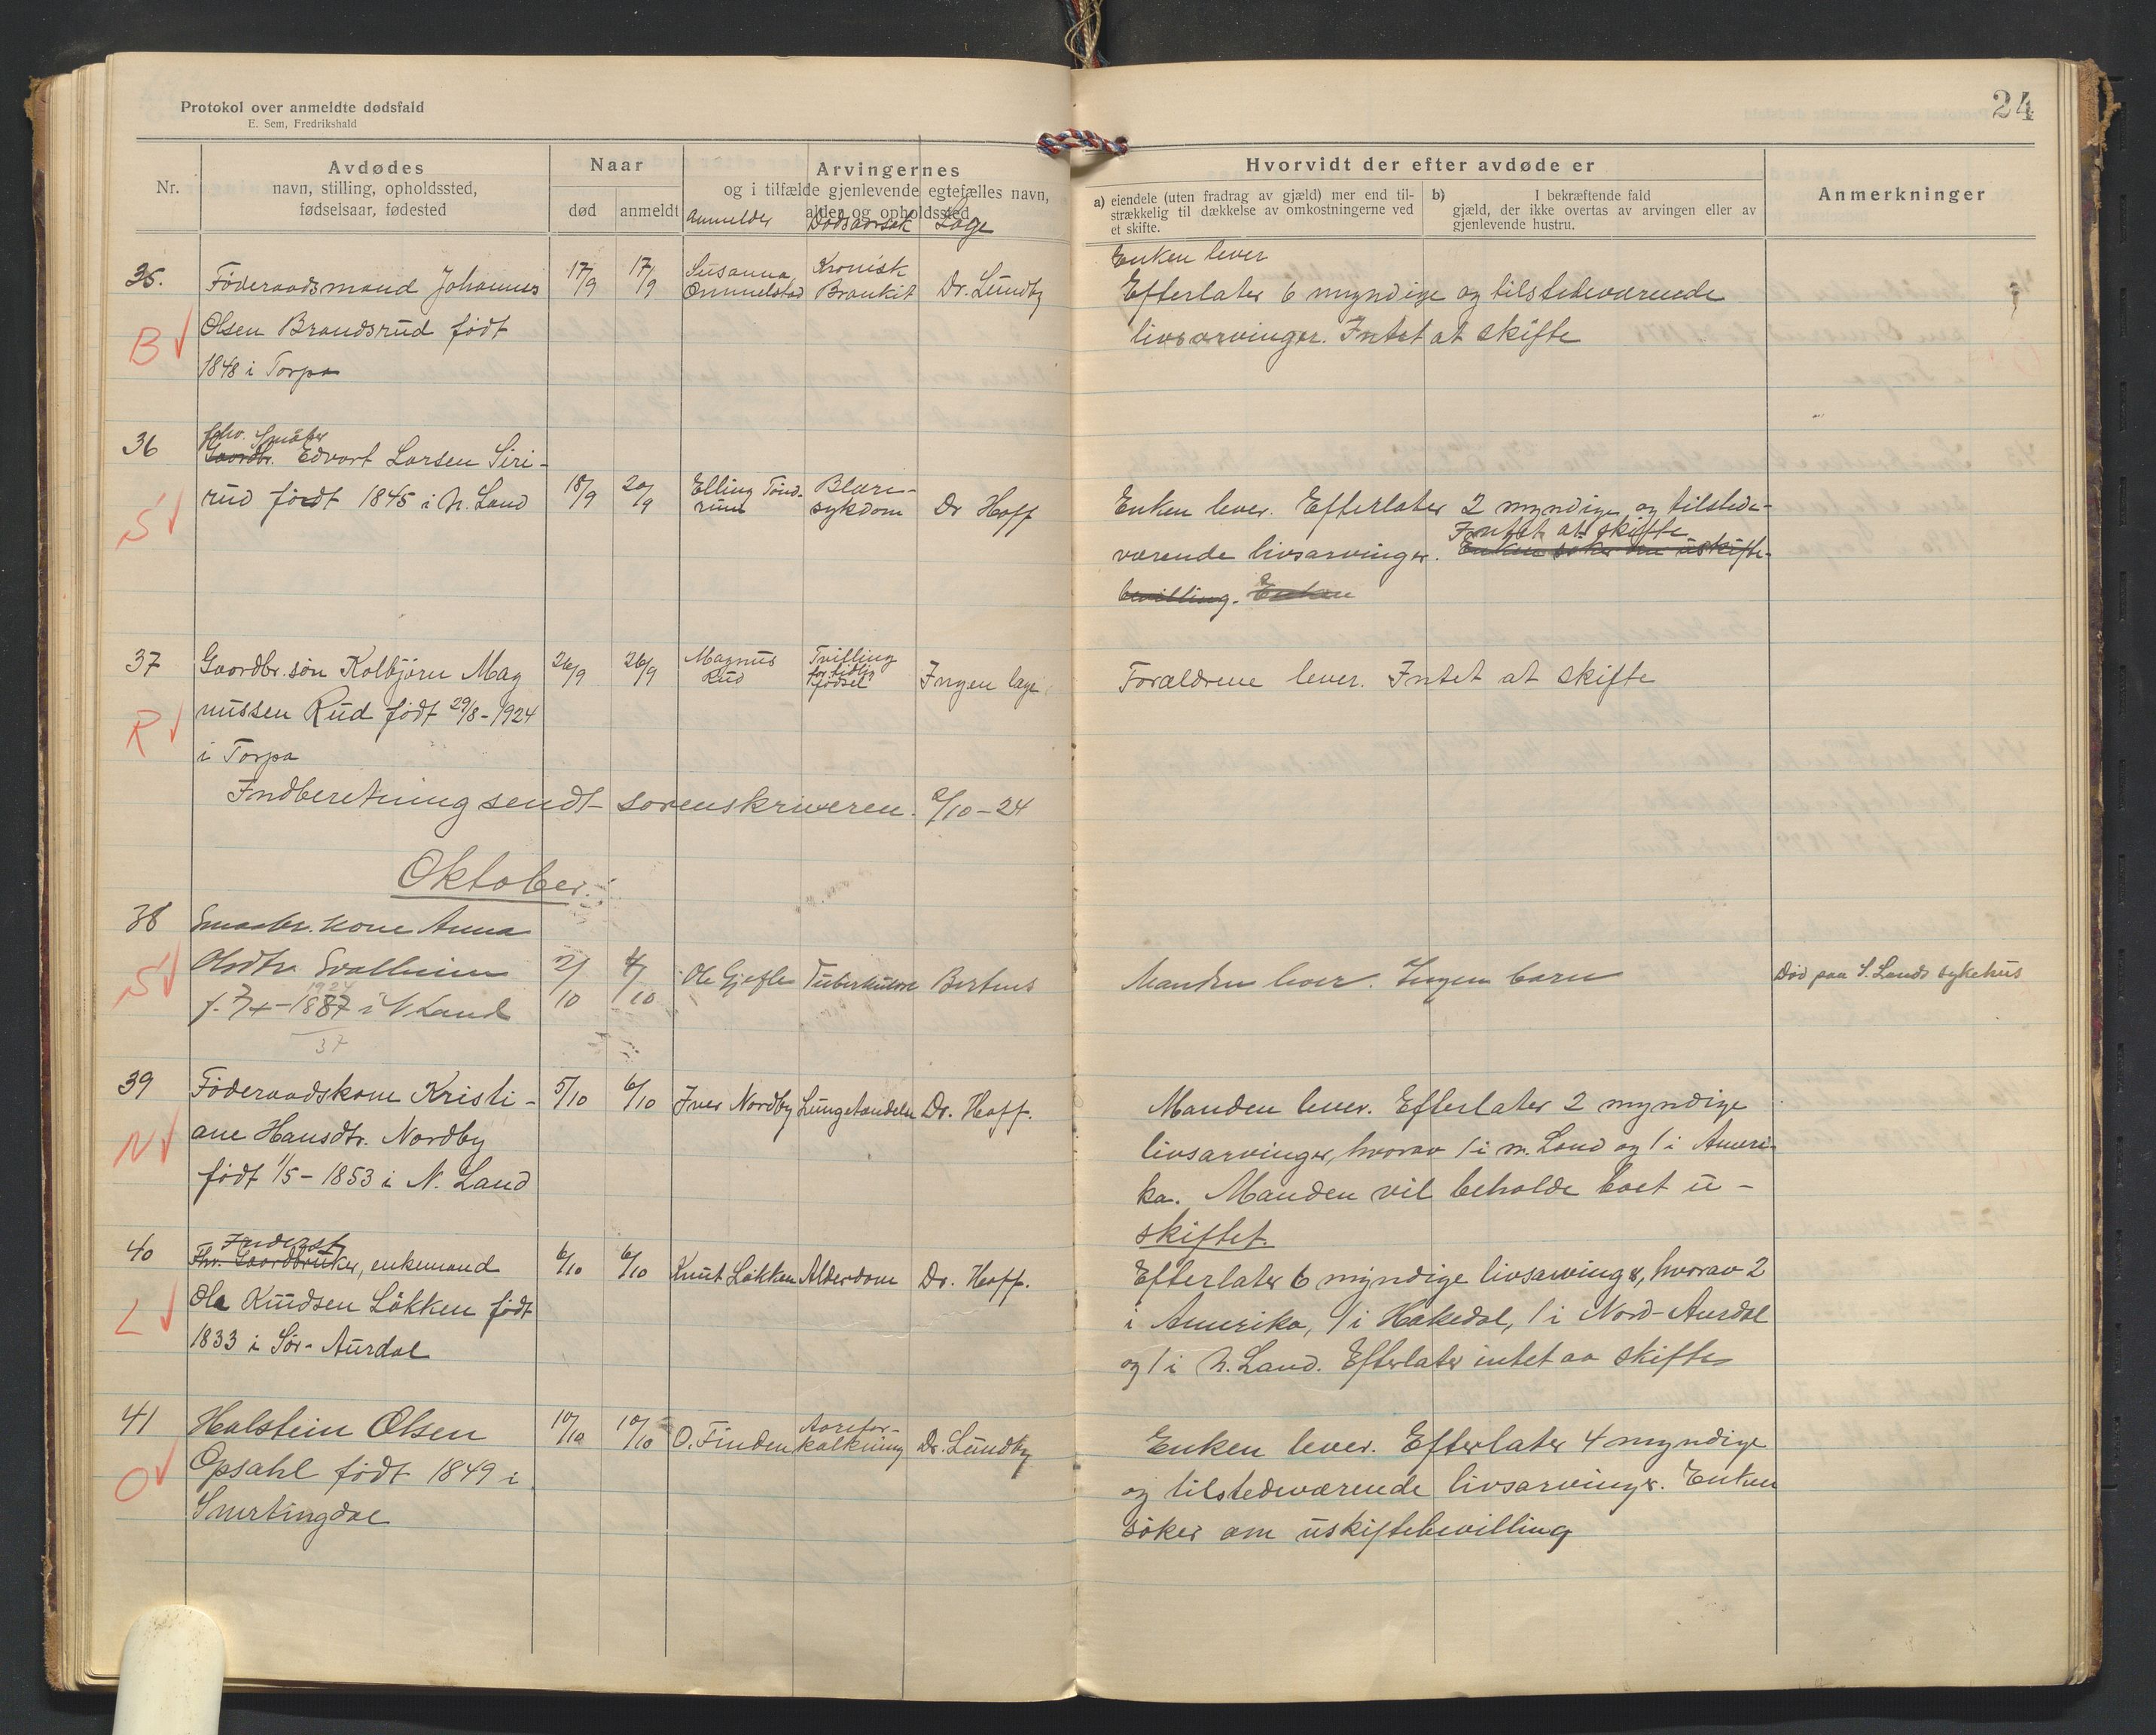 Protokol over anmeldte dødsfald
E. Sem, Fredrikshald
24
Nr.
Avdødes
navn, stilling, opholdssted,
fødselsaar, fødested
Naar
død
anmeldt
Arvingernes
og i tilfælde gjenlevende egtefælles navn,
alder og opholdssted
Anmelder Dødsaarsak Læge
Hvorvidt der efter avdøde er
a) eiendele (uten fradrag av gjæld) mer end til-
strækkelig til dækkelse av omkostningerne ved
et skifte.
b) I bekræftende fald
gjæld, der ikke overtas av arvingen eller av
gjenlevende hustru.
Anmerkninger
35. Föderaadsmand Johannes 17/9 17/9 Susanna Ommelstad Kronisk Bronkit Dr. Lundby
Olsen Brandsrud født
1848 i Torpa
B
Enken lever
Efterlater 6 myndige og tilstedeværende
livsarvinger. Intet at skifte
36 fhv. Småbr
Gaardbr. Edvart Larsen Siri-
rud født 1845 i N. Land 18/9 20/9 Elling Tönd- Blære-
sykdom Dr Hoff
S
Enken lever. Efterlater 2 myndige og tilstede-
Intet at skifte
værende livsarvinger. Enken søker om uskifte-
bevilling. Enken
37 Gaardbr. søn Kolbjörn Mag 26/9 26/9 Magnus Rud Tvilling for tidlig fødsel Ingen læge
nussen Rud født 29/8-1924
i Torpa
R
Forældrene lever. Intet at skifte
Indberetning sendt sorenskriveren. 2/10-24
Oktober.
38 Smaabr. kone Anna
Olsdtr. 2/10 4/10 Ole Gjefle Tuberkulose
1924
1887 i N Land
37
S
Manden lever. Ingen barn
Död paa S. Lands sykehus
39 Föderaadskone Kristi- 5/10 6/10 Iver Nordby Lungetændelse Dr. Hoff.
ane Hansdtr. Nordby
født 1/5-1853 i N. Land
N
Manden lever. Efterlater 2 myndige
livsarvinger, hvorav 1 i n. Land og 1 i Ameri-
ka. Manden vil beholde boet u-
skiftet.
40 Inderst
Fhv. Gaardbruker, enkemand 6/10 6/10 Knut Lökken Alderdom Dr. Hoff.
Ola Knudsen Lökken født
1833 i Sör-Aurdal
L
Efterlater 6 myndige livsarvinger, hvorav 2
i Amerika, 1 i Hakedal, 1 i Nord-Aurdal
og 1 i N. Land. Efterlater intet aa skifte
41 Halstein Olsen 10/10 10/10 O. Finden Aarefor-
kalkning Dr. Lundby
Opsahl født 1849 i
Snertingdal
O
Enken lever. Efterlater 4 myndige
og tilstedeværende livsarvinger. Enken
söker om uskiftebevilling